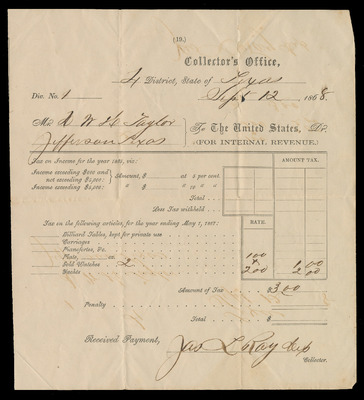 (19.)
Collector's Office,
4 District, State of Texas
Div. No. 1 Sept 12 1868.
Mr. W H Taylor
Jefferson Texas
To The United States, Dr.
(FOR INTERNAL REVENUE.)
Tax on Income for the year 1866, viz:
AMOUNT TAX.
Income exceeding $600 and
not exceeding $5,000: Amount, $ at 5 per cent.
Income exceeding $5,000: " $ " 10 " "
Total
Less Tax withheld
Tax on the following articles, for the year ending May 1, 1867:
RATE.
Billiard Tables, kept for private use
Carriages
Pianofortes, &c.
Plate, on
Gold Watches 2 1.00 1.00
Hacks 2.00 2.00
Amount of Tax $3.00
Penalty
Total $
Received Payment,
Jas L Ray Dep
Collector.